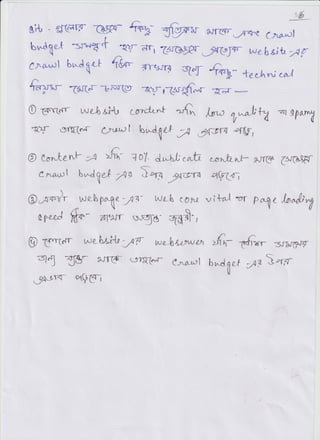 16
site - গুলোর ক্ষেত্রে কিছু ব্যতিক্রম থাকে এবং crawl
budget সমস্যা হয় না, সেক্ষেত্রে প্রত্যেক website -এর
crawl budget ঠিক রাখার জন্য কিছু technical
নিয়ম মেনে চলতে হয়, সেগুলি হল —
① কোনো website content যদি low quality বা spamy
হয় তাহলে crawl budget -এ প্রভাব পড়ে,
② content -এ যদি 70% dublicate content থাকে সেক্ষেত্রে
crawl budget -এর উপর প্রভাব পড়বে,
③ একটা webpage -এর web core vital বা page loading
speed ঠিক রাখা অত্যন্ত জরুরী,
④ কোনো website -এর webserver যদি বেশিক্ষণ সময়ের
জন্য ব্যস্ত থাকে তাহলে crawl budget -এর উপর
প্রভাব পড়বে,